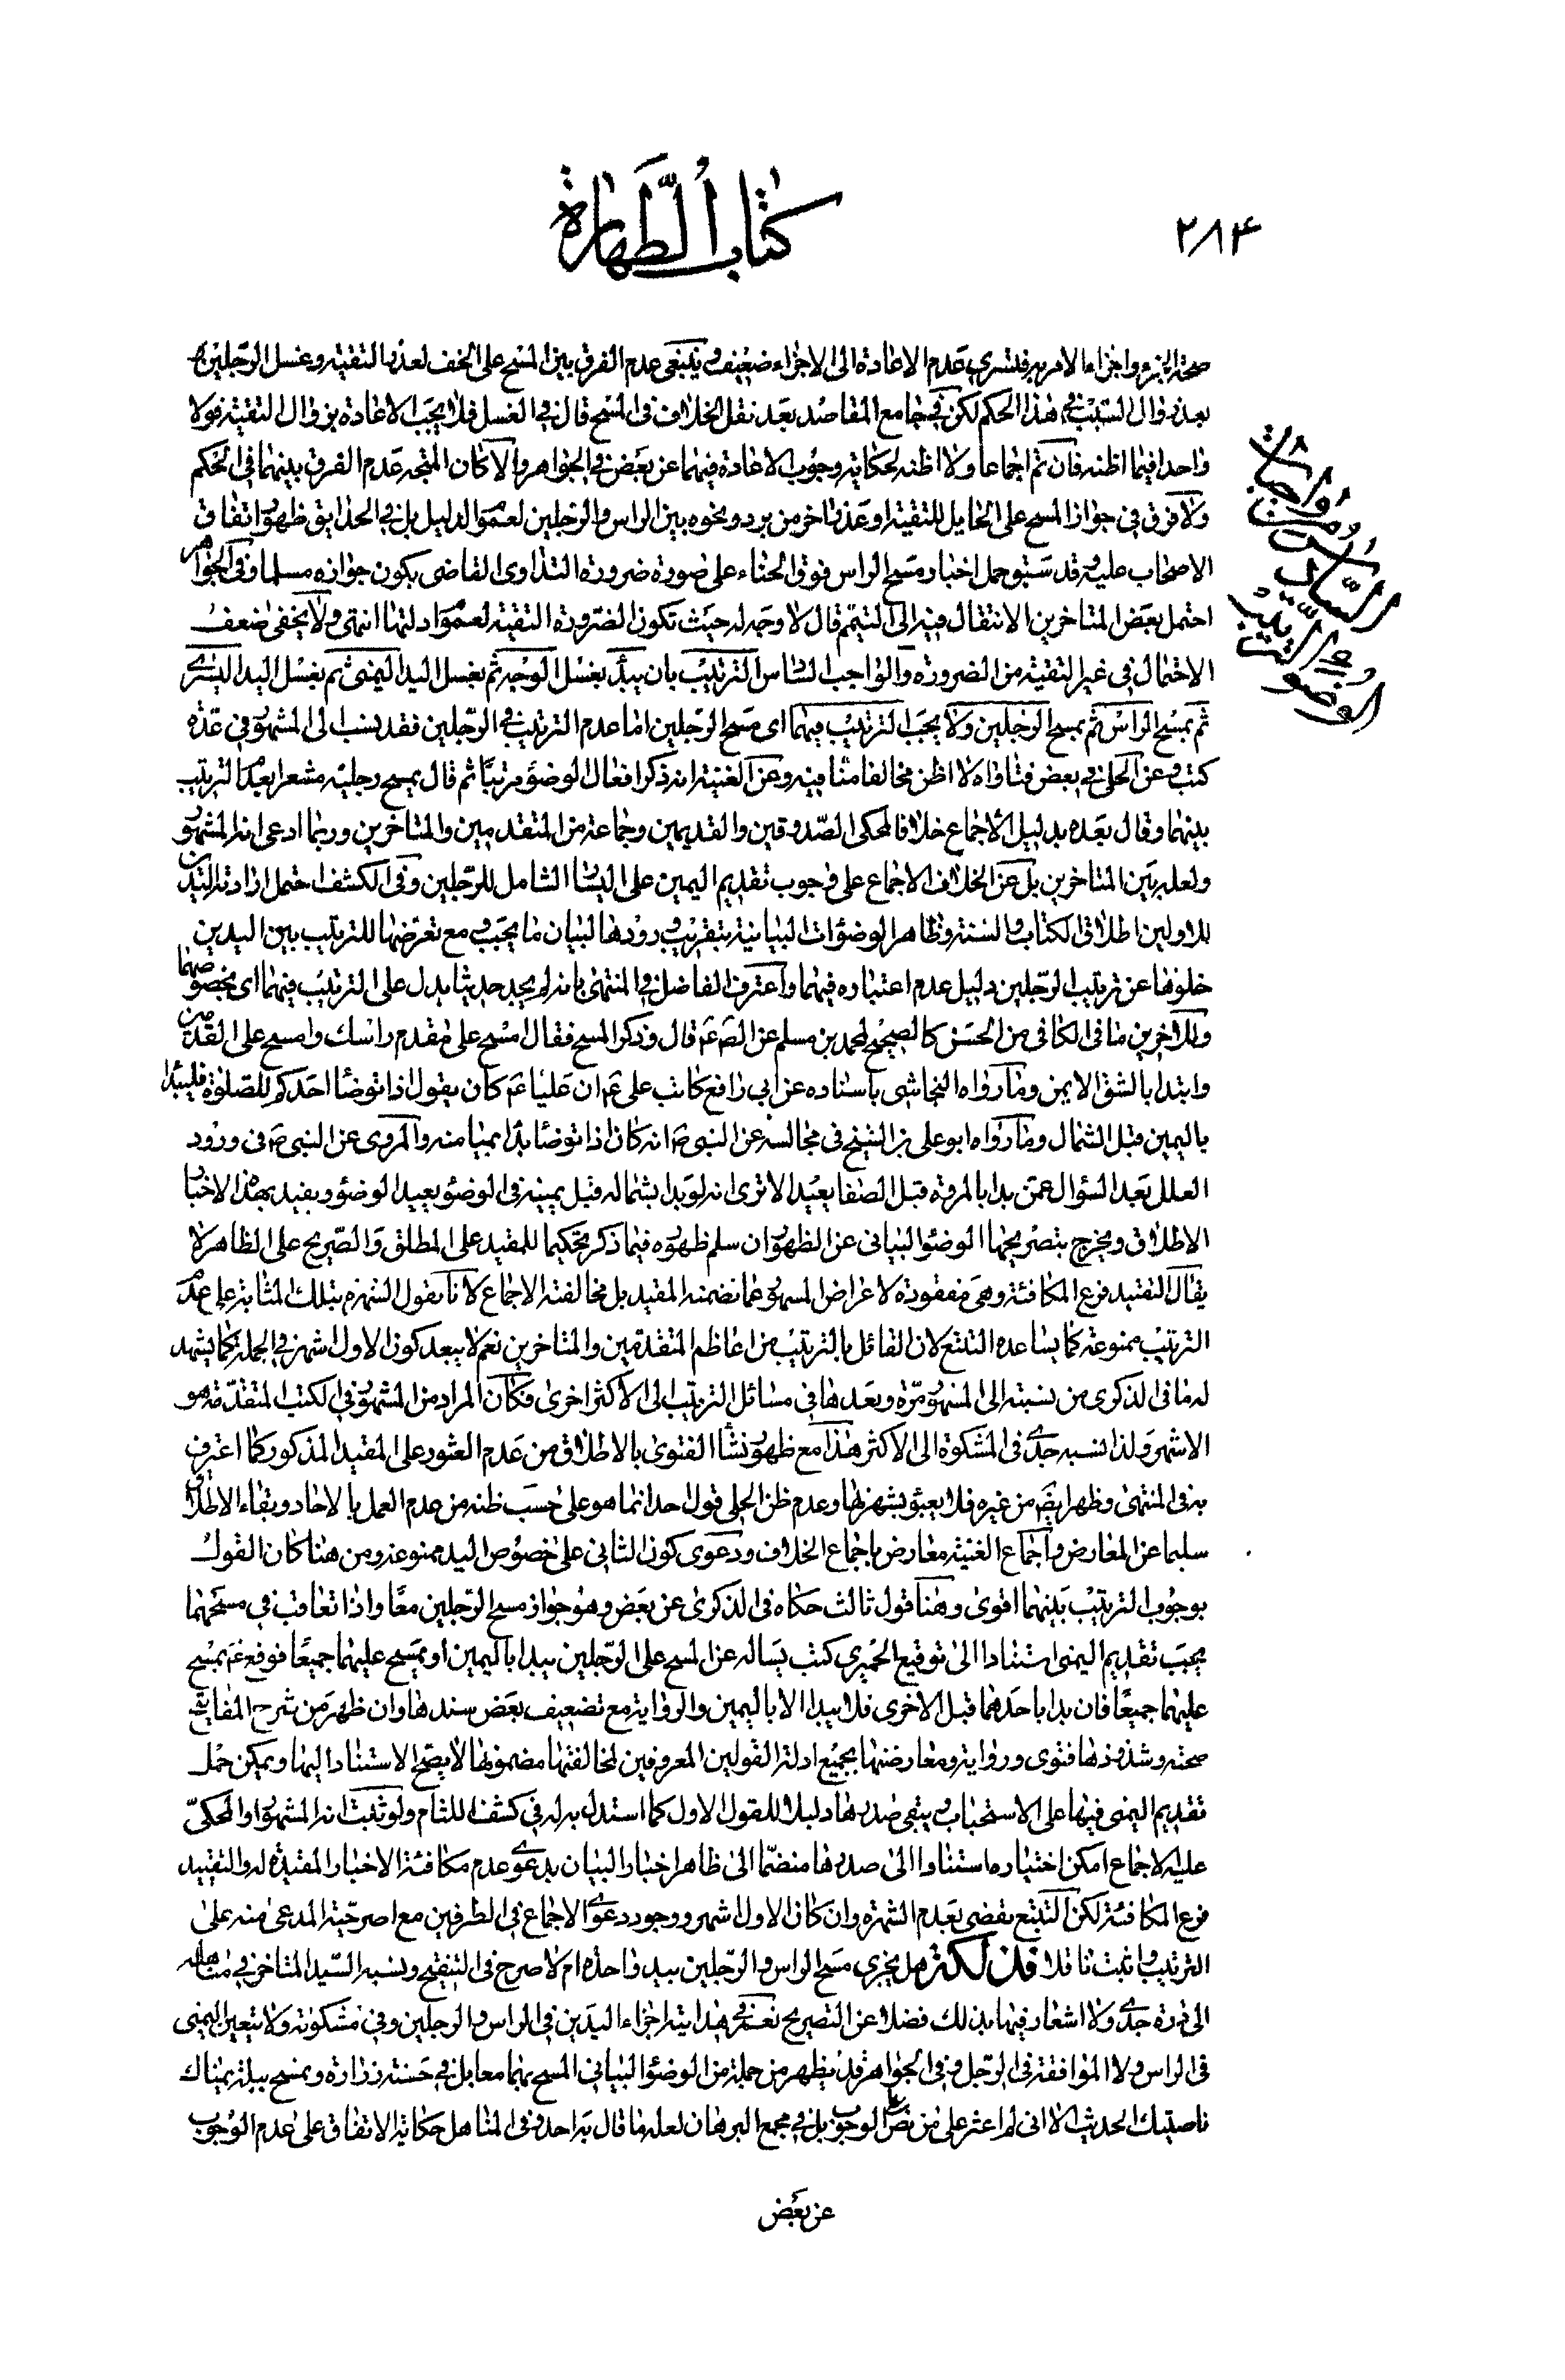 ۲۸۴
كتاب الطهارة
صحة الجزء واجزاء الامر به فلتسري عدم الاعادة الى الاجزاء ضعيف وينبغى عدم الفرق بين المسح على الخف لعذر التقية وغسل الرجلين
بعد زوال السبب في هذا الحكم لكن في جامع المقاصد بعد نقل الخلاف فى المسح قال في الغسل فلا يجب الاعادة بزوال التقية قولا
واحدا فيما اظنه فان تم اجماعا ولا اظنه لحكاية وجوب الاعادة فيهما عن بعض في الجواهر والا كان المتجه عدم الفرق بينهما فى الحكم
ولا فرق فى جواز المسح على الحايل للتقية او عذر اخر من برد ونحوه بين الراس والرجلين لعموم الدليل بل في الحدايق ظهور اتفاق
الاصحاب عليه وقد سبق حمل اخبار مسح الراس فوق الحناء على صورة ضرورة التداوى القاضى بكون جوازه مسلما وفى الجواهر
احتمل بعض المتاخرين الانتقال فيه الى التيمم قال لا وجه له حيث تكون الضرورة التقية لعموم ادلتها انتهى ولا يخفى ضعف
الاحتمال فى غير التقية من الضرورة والواجب السادس الترتيب بان يبدأ بغسل الوجه ثم بغسل اليد اليمنى ثم بغسل اليد اليسرى
ثم بمسح الراس ثم بمسح الرجلين ولا يجب الترتيب فيهما اى مسح الرجلين اما عدم الترتيب في الرجلين فقد نسب الى المشهور في عدة
كتب وعن الحلى في بعض فتاواه لا اظن مخالفا منا فيه وعن الغنية انه ذكر افعال الوضوء مرتبا ثم قال يمسح رجليه مشعرا بعدم الترتيب
بينهما وقال بعده بدليل الاجماع خلافا لمحكى الصدوقين والقديمين وجماعة من المتقدمين والمتاخرين وربما ادعى انه المشهور
ولعله بين المتاخرين بل عن الخلاف الاجماع على وجوب تقديم اليمين على اليسار الشامل للرجلين وفى الكشف احتمل ارادته اليدين
للاولين اطلاق الكتاب والسنة وظاهر الوضوءات البيانية بتقريب ورودها لبيان ما يجب ومع تعرضها للترتيب بين اليدين
خلوها عن ترتيب الرجلين دليل عدم اعتباره فيهما واعترف الفاضل في المنتهى بانه لم يجد حديثا يدل على الترتيب فيهما اى بخصوصهما
وللاخرين ما فى الكافى من الحسن كالصحيح لمحمد بن مسلم عن الص ع قال وذكر المسح فقال امسح على مقدم راسك وامسح على القدمين
وابتدا بالشق الايمن وما رواه النجاشى باسناده عن ابي رافع كاتب على ع ان عليا ع كان يقول اذا توضا احدكم للصلوة فليبدا
باليمين قبل الشمال وما رواه ابو على بن الشيخ فى مجالسه عن النبى ص انه كان اذا توضا بدا بميامنه والمروى عن النبى ص فى ورود
العلل بعد السؤال عمن بدا بالمروة قبل الصفا يعيد الا ترى انه لو بدا بشماله قبل يمينه فى الوضوء يعيد الوضوء ويفيد بهذا الاخبار
الاطلاق ويخرج بتصريحها الوضوء البيانى عن الظهور ان سلم ظهوره فيما ذكر تحكيما للمقيد على المطلق والصريح على الظاهر لا
يقال التقييد فرع المكافئة وهى مفقودة لاعراض المشهور عما تضمنه المقيد بل مخالفته الاجماع لانا نقول الشهرة بتلك المثابة على عدم
الترتيب ممنوعة كما يساعده التتبع لان القائل بالترتيب من اعاظم المتقدمين والمتاخرين نعم لا يبعد كون الاول اشهر في الجملة كما يشهد
له ما فى الذكرى من نسبته الى المشهور مرة وبعدها فى مسائل الترتيب الى الاكثر اخرى فكان المراد من المشهور في الكتب المتقدمة هو
الاشهر ولذا نسبه جدى فى المشكوة الى الاكثر هذا مع ظهور نشأ الفتوى بالاطلاق من عدم العثور على المقيد المذكور كما اعترف
به فى المنتهى وظهر ايضا من غيره فلا يعبؤ بشهرتها وعدم ظن الحلى قول احد انما هو على حسب ظنه من عدم العمل بالاحاد وبقاء الاطلاق
سليما عن المعارض واجماع الغنية معارض باجماع الخلاف ودعوى كون الثانى على خصوص اليد ممنوعة ومن هنا كان القول
بوجوب الترتيب بينهما اقوى وهنا قول ثالث حكاه فى الذكرى عن بعض وهو جواز مسح الرجلين معا واذا تعاقب في مسحهما
يجب تقديم اليمنى استنادا الى توقيع الحميرى كتب يساله عن المسح على الرجلين يبدا باليمين او يمسح عليهما جميعا فوقع ع يمسح
عليهما جميعا فان بدا باحدهما قبل الاخرى فلا يبدا الا باليمين والرواية مع تضعيف بعض سندها وان ظهر من شرح المفاتيح
صحته وشذوذها فتوى ورواية ومعارضتها بجميع ادلة القولين المعروفين لمخالفتها مضمونها لا يصح الاستناد اليها ويمكن حمل
تقديم اليمنى فيها على الاستحباب ويبقى صدرها دليلا للقول الاول كما استدل به له في كشف اللثام ولو ثبت انه المشهور او المحكى
عليه الاجماع امكن اختياره استنادا الى صدرها منضما الى ظاهر اخبار البيان بدعوى عدم مكافئة الاخبار المقيدة له والتقييد
فرع المكافئة لكن التتبع يقضى بعدم الشهرة وان كان الاول اشهر ووجود دعوى الاجماع في الطرفين مع اصرحية المدعى منه على
الترتيب واثبت ناقلا هل يجزى مسح الراس والرجلين بيد واحدة ام لا صرح فى التنقيح ونسبه السيد المتاخر في مناهله
الى درة جدى ولا اشعار فيها بذلك فضلا عن التصريح نعم في هدايته اجزاء اليدين فى الراس والرجلين وفى مشكوته ولا يتعين اليمنى
فى الراس ولا الموافقة فى الرجل وفى الجواهر قد يظهر من جملة من الوضوء البيانى المسح بهما معا بل في حسنة زرارة وتمسح ببلة يمناك
ناصيتك الحديث الا انى لم اعثر على من نص على الوجوب بل في مجمع البرهان لعله ما قال به احد وفى المناهل حكاية الاتفاق على عدم الوجوب
عن بعض
الوضوء الترتيب